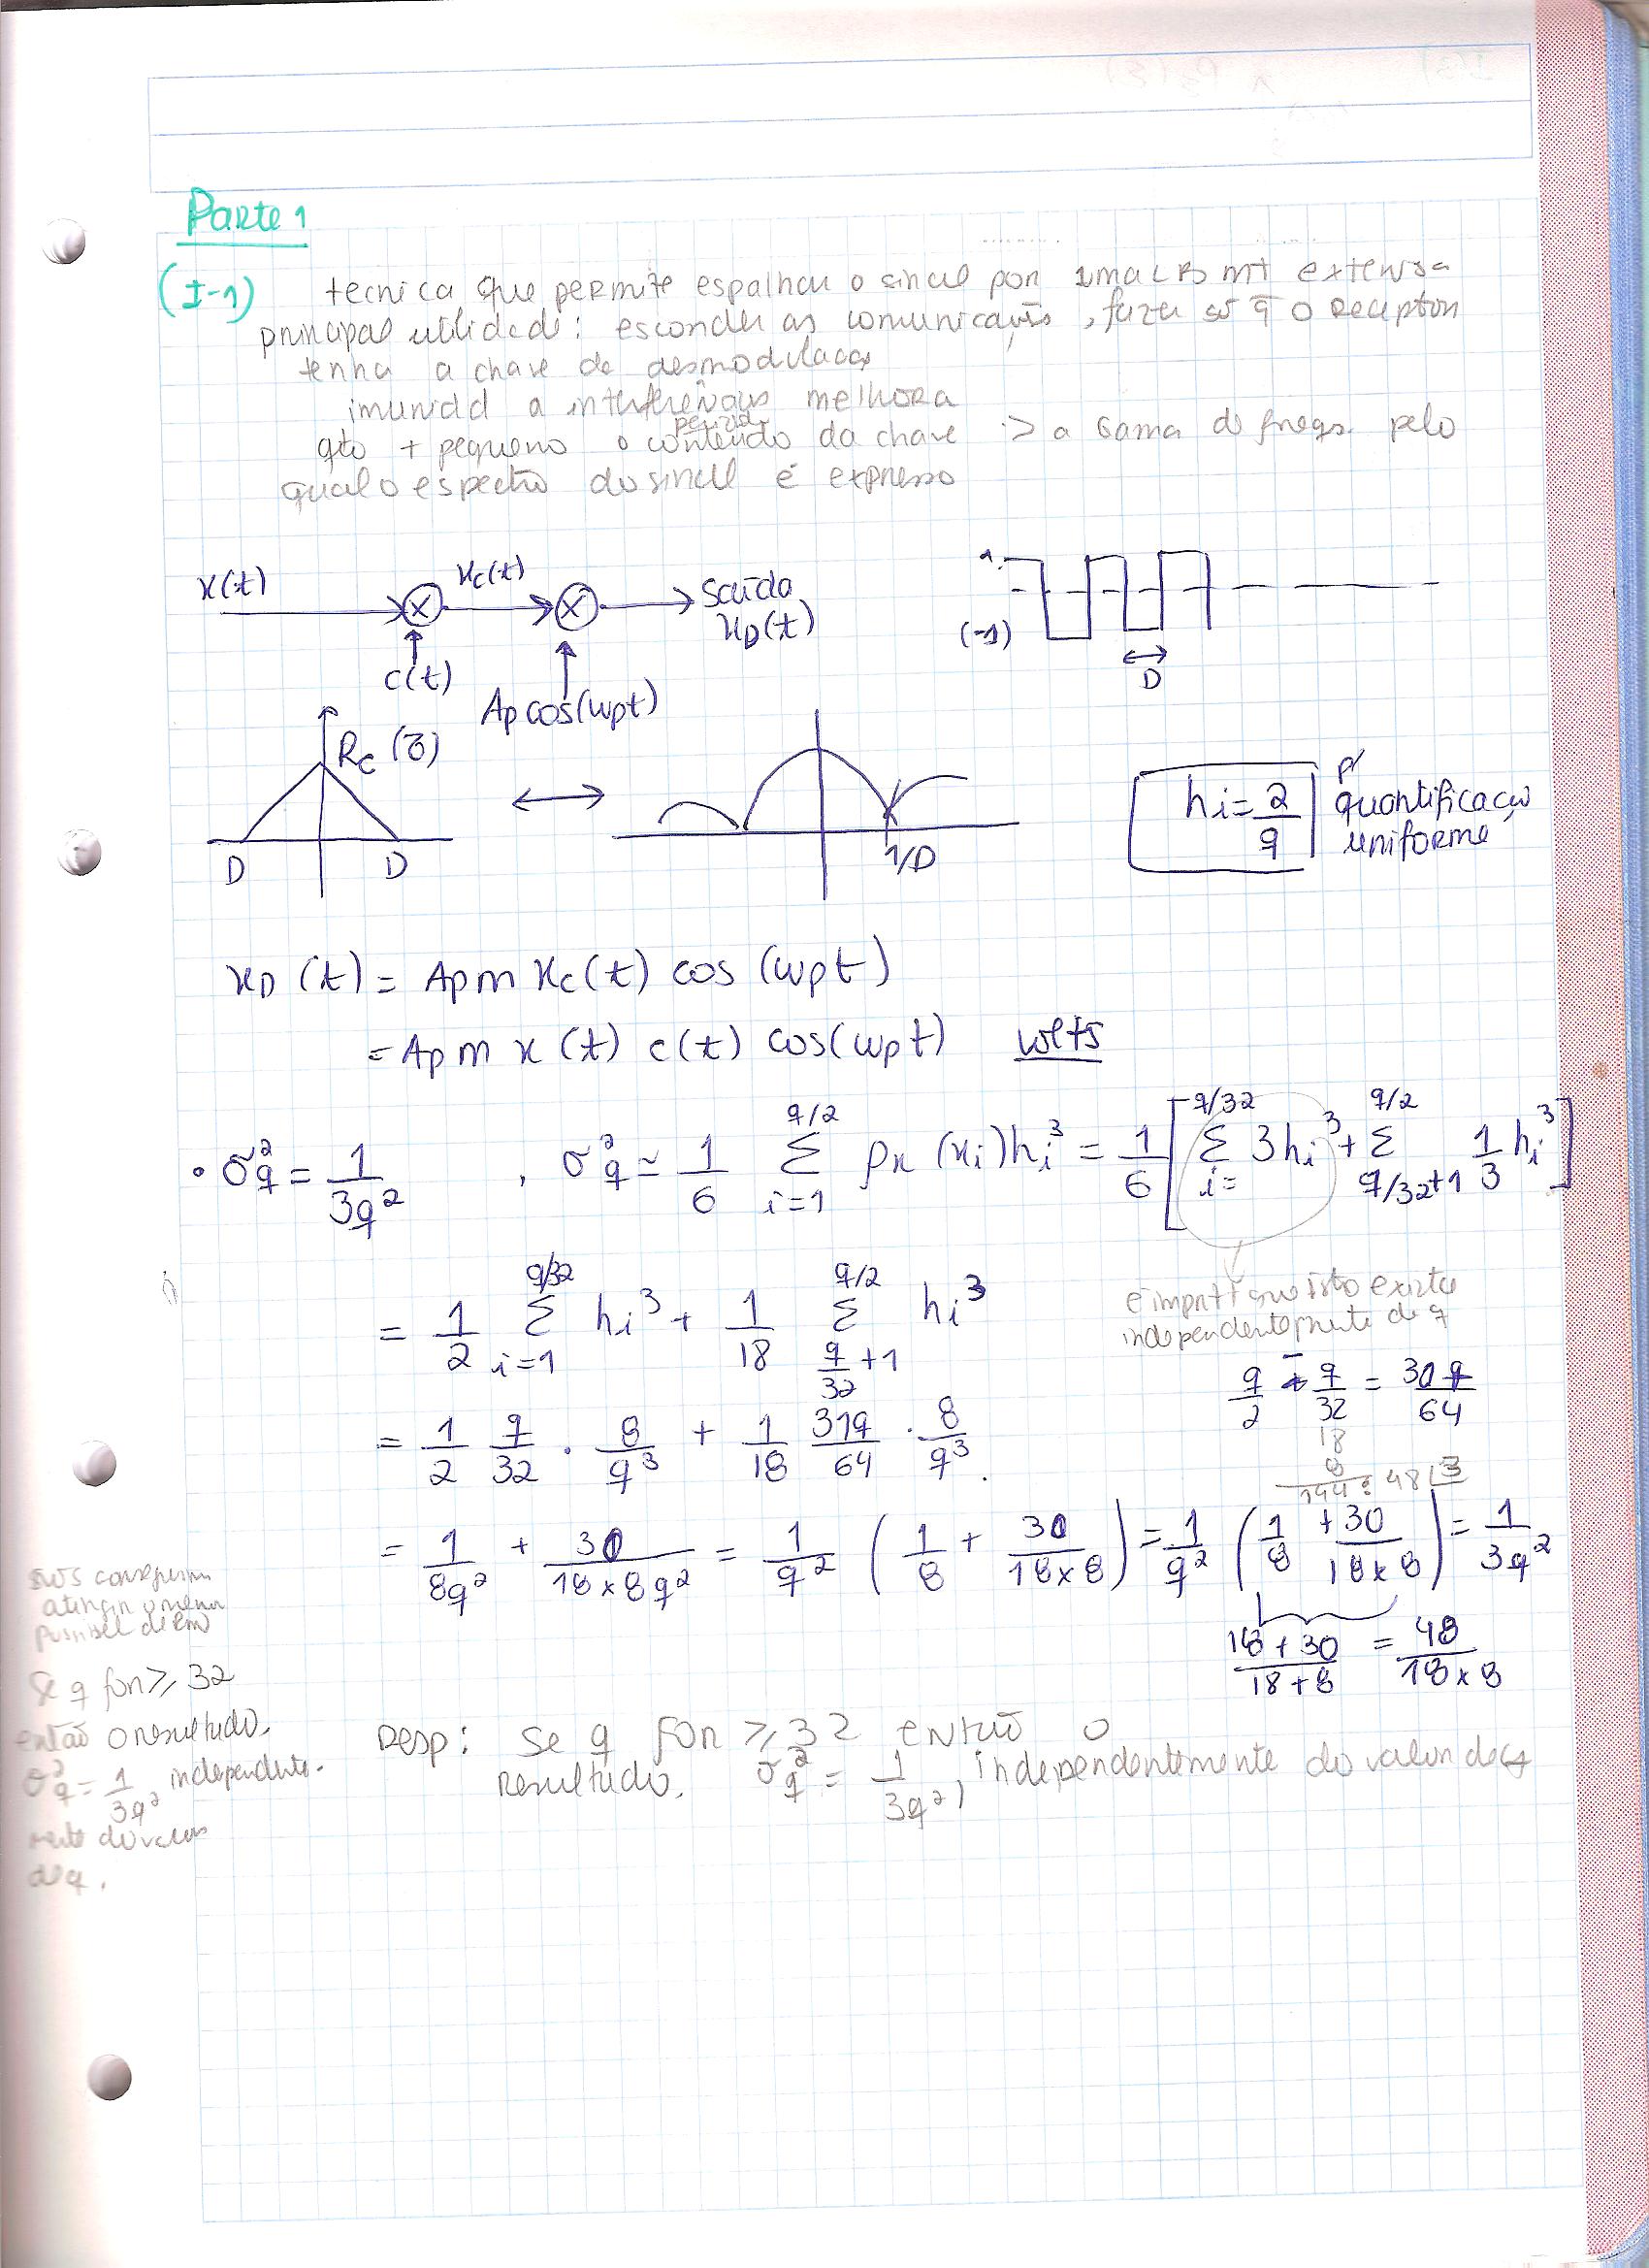 Parte 1
(I-1) tecnica que permite espalhar o sinal por uma LB mt extensa
principal utilidade: esconder as comunicações, fazer só q̄ o receptor
tenha a chave de desmodulação
imunidd a interferências melhora
periodo
qto + pequeno o conteúdo da chave > a Gama de freqs. pelo
qual o espectro do sinal é expresso
x(t)
xc(t)
Saída
xD(t)
c(t)
Ap cos(wpt)
1
(-1)
D
Rc(τ)
D D
1/D
hi = 2/q
p/
quantificação
uniforme
xD(t) = Apm xc(t) cos(wpt)
= Apm x(t) c(t) cos(wpt) volts
• σq² = 1/3q² , σq² ≃ 1/6 Σ(i=1, q/2) px(xi)hi³ = 1/6 [ Σ(i=, q/32) 3hi³ + Σ(q/32+1, q/2) 1/3 hi³ ]
= 1/2 Σ(i=1, q/32) hi³ + 1/18 Σ(q/32 +1, q/2) hi³
independentemente de q
q/2 - q/32 = 30q/64
= 1/2 q/32 . 8/q³ + 1/18 31q/64 . 8/q³.
18
8
144 : 48 | 3
= 1/8q² + 30/18×8q² = 1/q² (1/8 + 30/18×8) = 1/q² (1/8 + 30/18×8) = 1/3q²
18+30/18+8 = 48/18×8
Se q for ≥ 32
então o resultado.
σq² = 1/3q², independente-
mente do valor
de q.
Resp: se q for ≥ 32 então o
resultado. σq² = 1/3q², independentemente do valor de q